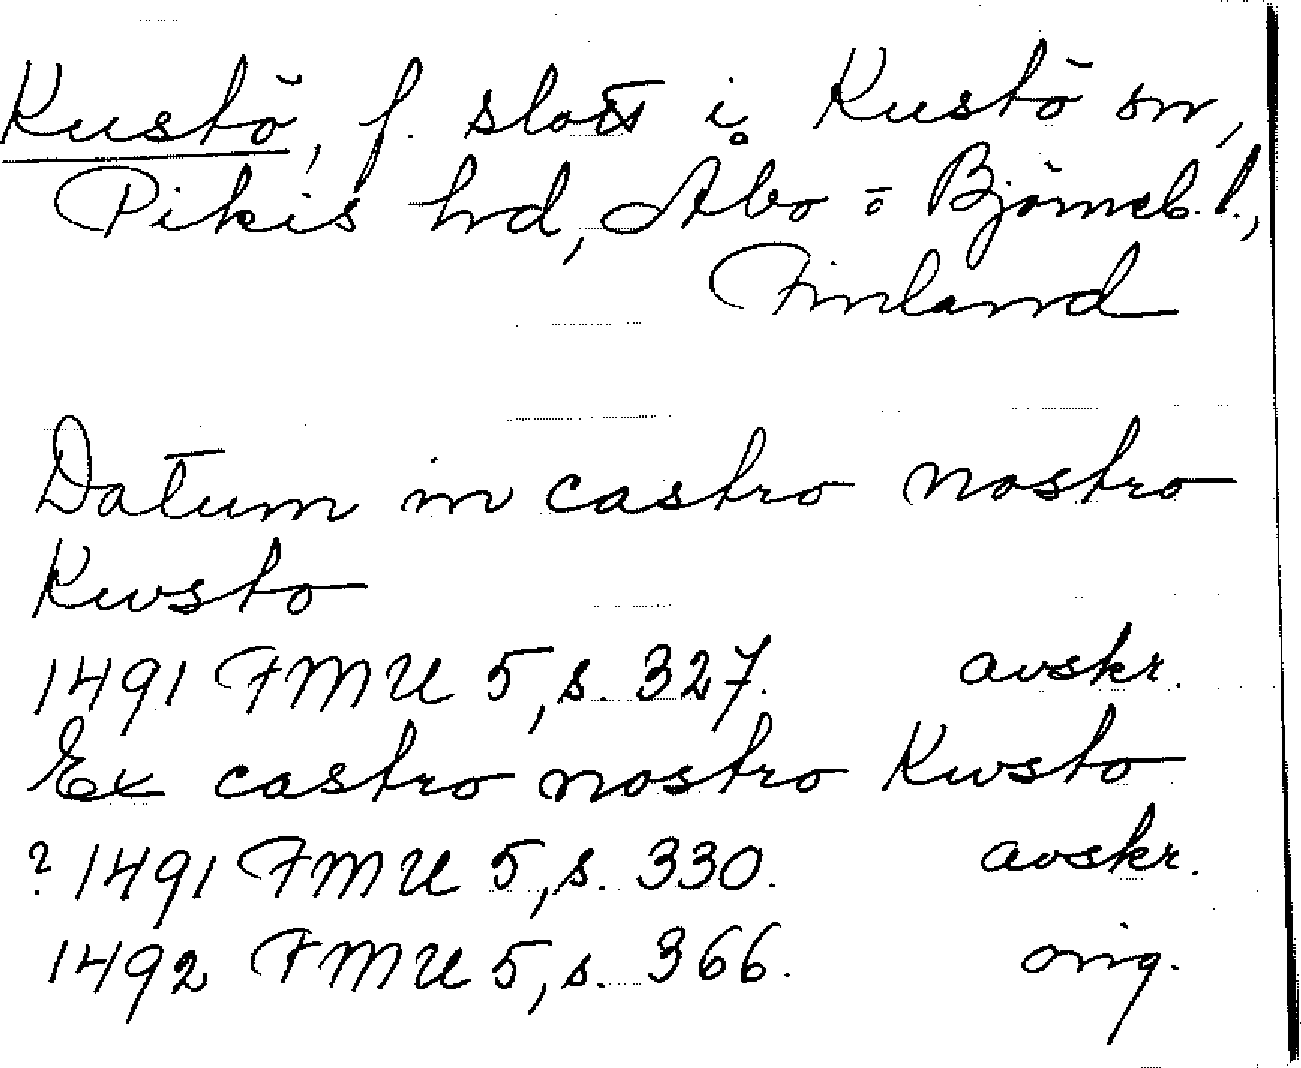 Kustö, f. slott i Kustö sn,
Pikis hd, Åbo o Björneb. l.,
Finland
Datum in castro nostro
Kwsto
1491 FMU 5, s. 327. avskr.
Ex castro nostro Kwsto
? 1491 FMU 5, s. 330. avskr.
1492 FMU 5, s. 366. orig.